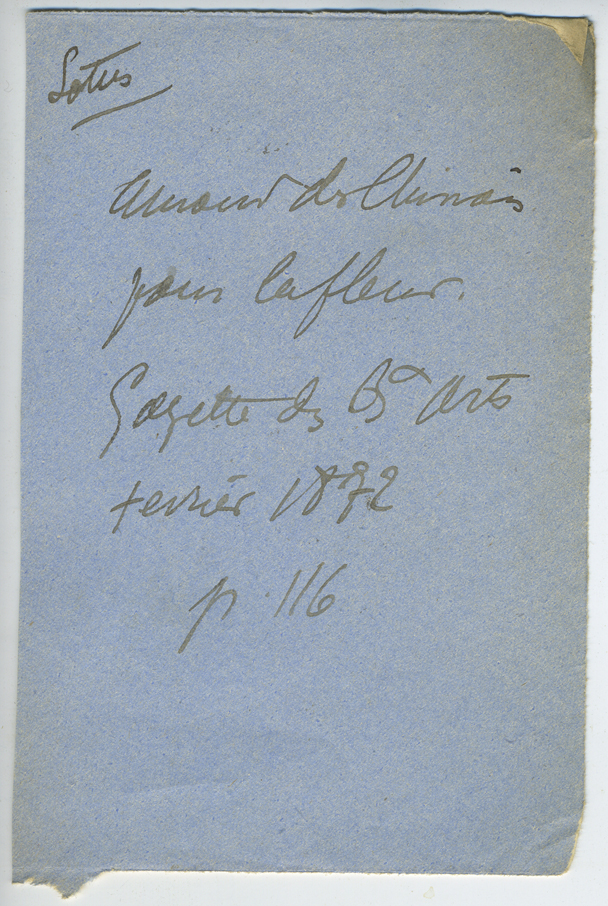 Lotus
amour des Chinois
pour la fleur.
Gazette des Bx Arts
fevrier 1872
p. 116